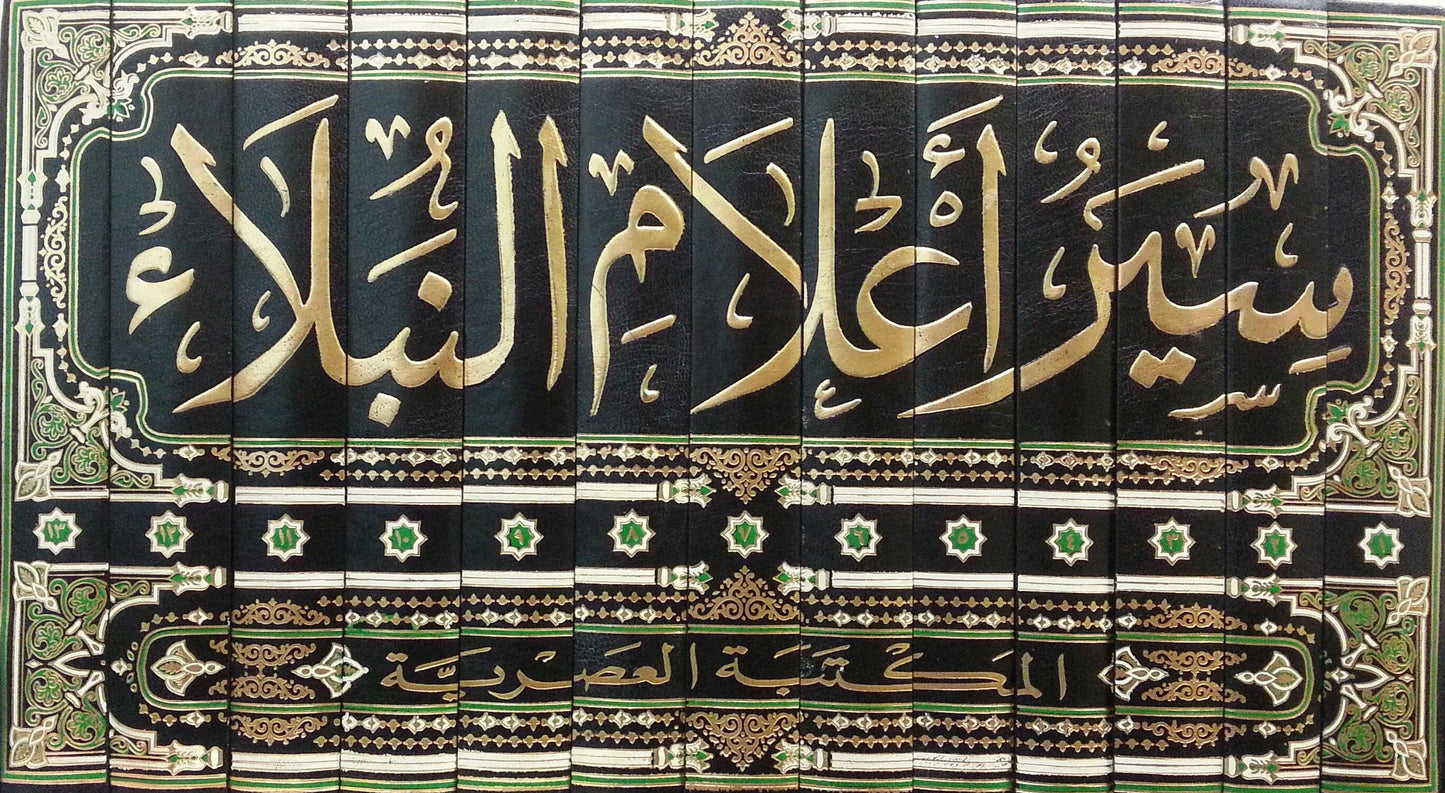 سِيَرُ أَعْلَامِ النُّبَلَاءِ
١ ٢ ٣ ٤ ٥ ٦ ٧ ٨ ٩ ١٠ ١١ ١٢ ١٣
المَكتَبَة العَصْريَّة